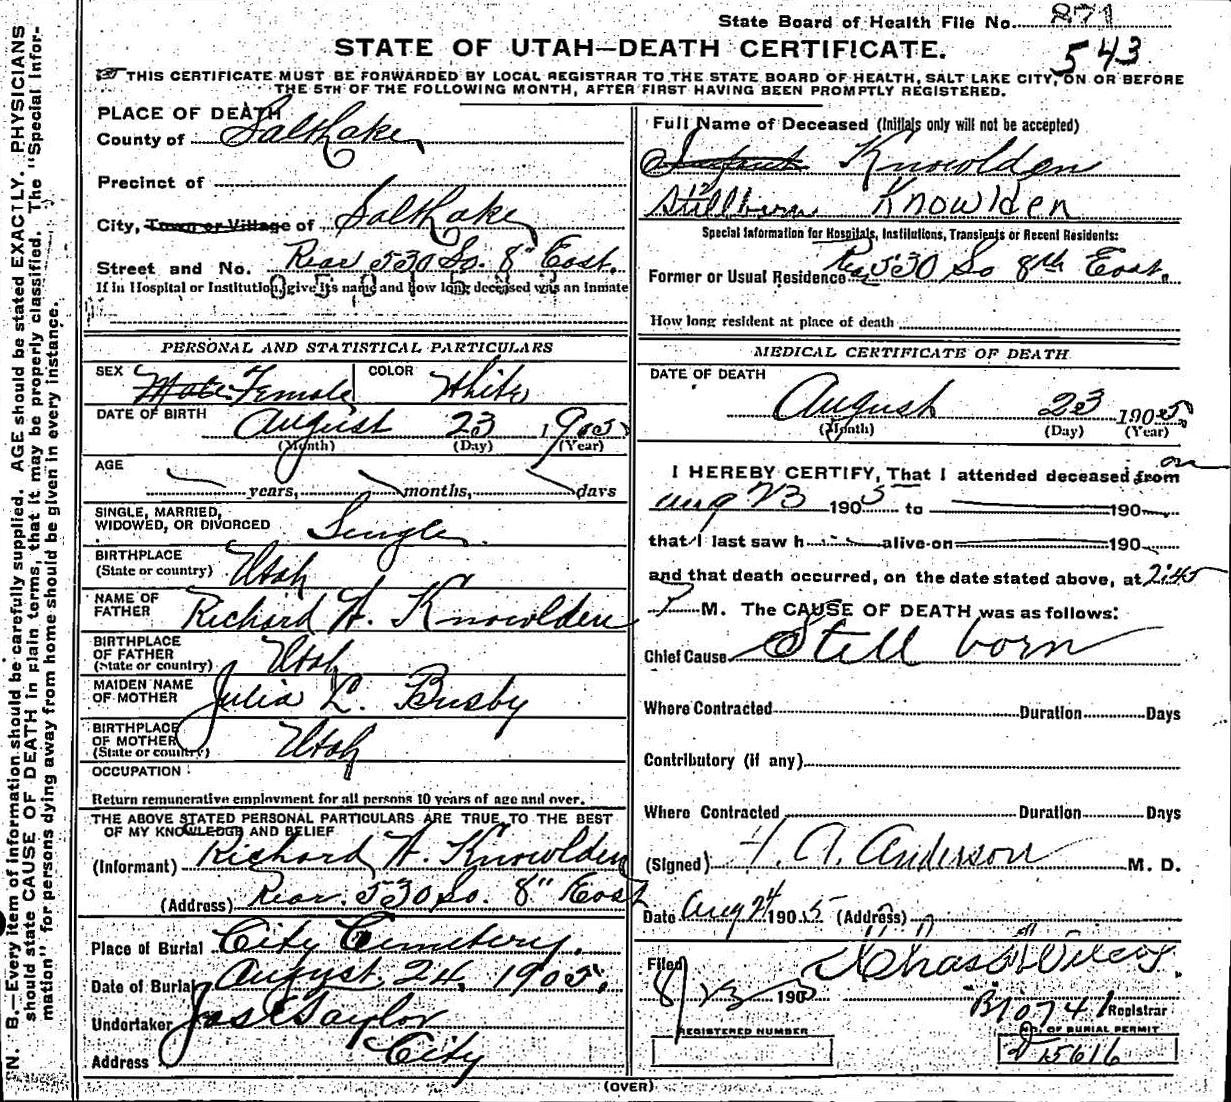 State Board of Health File No. 871
543
STATE OF UTAH—DEATH CERTIFICATE.
THIS CERTIFICATE MUST BE FORWARDED BY LOCAL REGISTRAR TO THE STATE BOARD OF HEALTH, SALT LAKE CITY, ON OR BEFORE
THE 5TH OF THE FOLLOWING MONTH, AFTER FIRST HAVING BEEN PROMPTLY REGISTERED.
N. B.—Every item of information should be carefully supplied. AGE should be stated EXACTLY. PHYSICIANS
should state CAUSE OF DEATH in plain terms, that it may be properly classified. The "Special Infor-
mation" for persons dying away from home should be given in every instance.
PLACE OF DEATH
County of Salt Lake
Precinct of
City, Town or Village of Salt Lake
Street and No. Rear 530 So. 8" East.
If in Hospital or Institution, give its name and how long deceased was an inmate
PERSONAL AND STATISTICAL PARTICULARS
SEX Male Female COLOR White
DATE OF BIRTH August 23 1905
(Month) (Day) (Year)
AGE
years, months, days
SINGLE, MARRIED,
WIDOWED, OR DIVORCED Single
BIRTHPLACE
(State or country) Utah
NAME OF
FATHER Richard W. Knowlden
BIRTHPLACE
OF FATHER
(State or country) Utah
MAIDEN NAME
OF MOTHER Julia L. Busby
BIRTHPLACE
OF MOTHER
(State or country) Utah
OCCUPATION
Return remunerative employment for all persons 10 years of age and over.
THE ABOVE STATED PERSONAL PARTICULARS ARE TRUE TO THE BEST
OF MY KNOWLEDGE AND BELIEF
(Informant) Richard W. Knowlden
(Address) Rear. 530 So. 8" East
Place of Burial City Cemetery.
Date of Burial August 24, 1905.
Undertaker Jos E Taylor
Address City
Full Name of Deceased (Initials only will not be accepted)
Infant Knowlden
Stillborn Knowlden
Special Information for Hospitals, Institutions, Transients or Recent Residents:
Former or Usual Residence Rear 530 So 8th East.
How long resident at place of death
MEDICAL CERTIFICATE OF DEATH
DATE OF DEATH
August 23 1905
(Month) (Day) (Year)
I HEREBY CERTIFY, That I attended deceased from on
Aug 23 1905 to 190
that I last saw h alive on 190
and that death occurred, on the date stated above, at 2:45
P M. The CAUSE OF DEATH was as follows:
Chief Cause Still born
Where Contracted Duration Days
Contributory (if any)
Where Contracted Duration Days
(Signed) A. Anderson M. D.
Date Aug 24 1905 (Address)
Filed 8/23 1905 Chas Wilcox
Registrar
B10741
REGISTERED NUMBER
No. OF BURIAL PERMIT
D15616
(OVER)